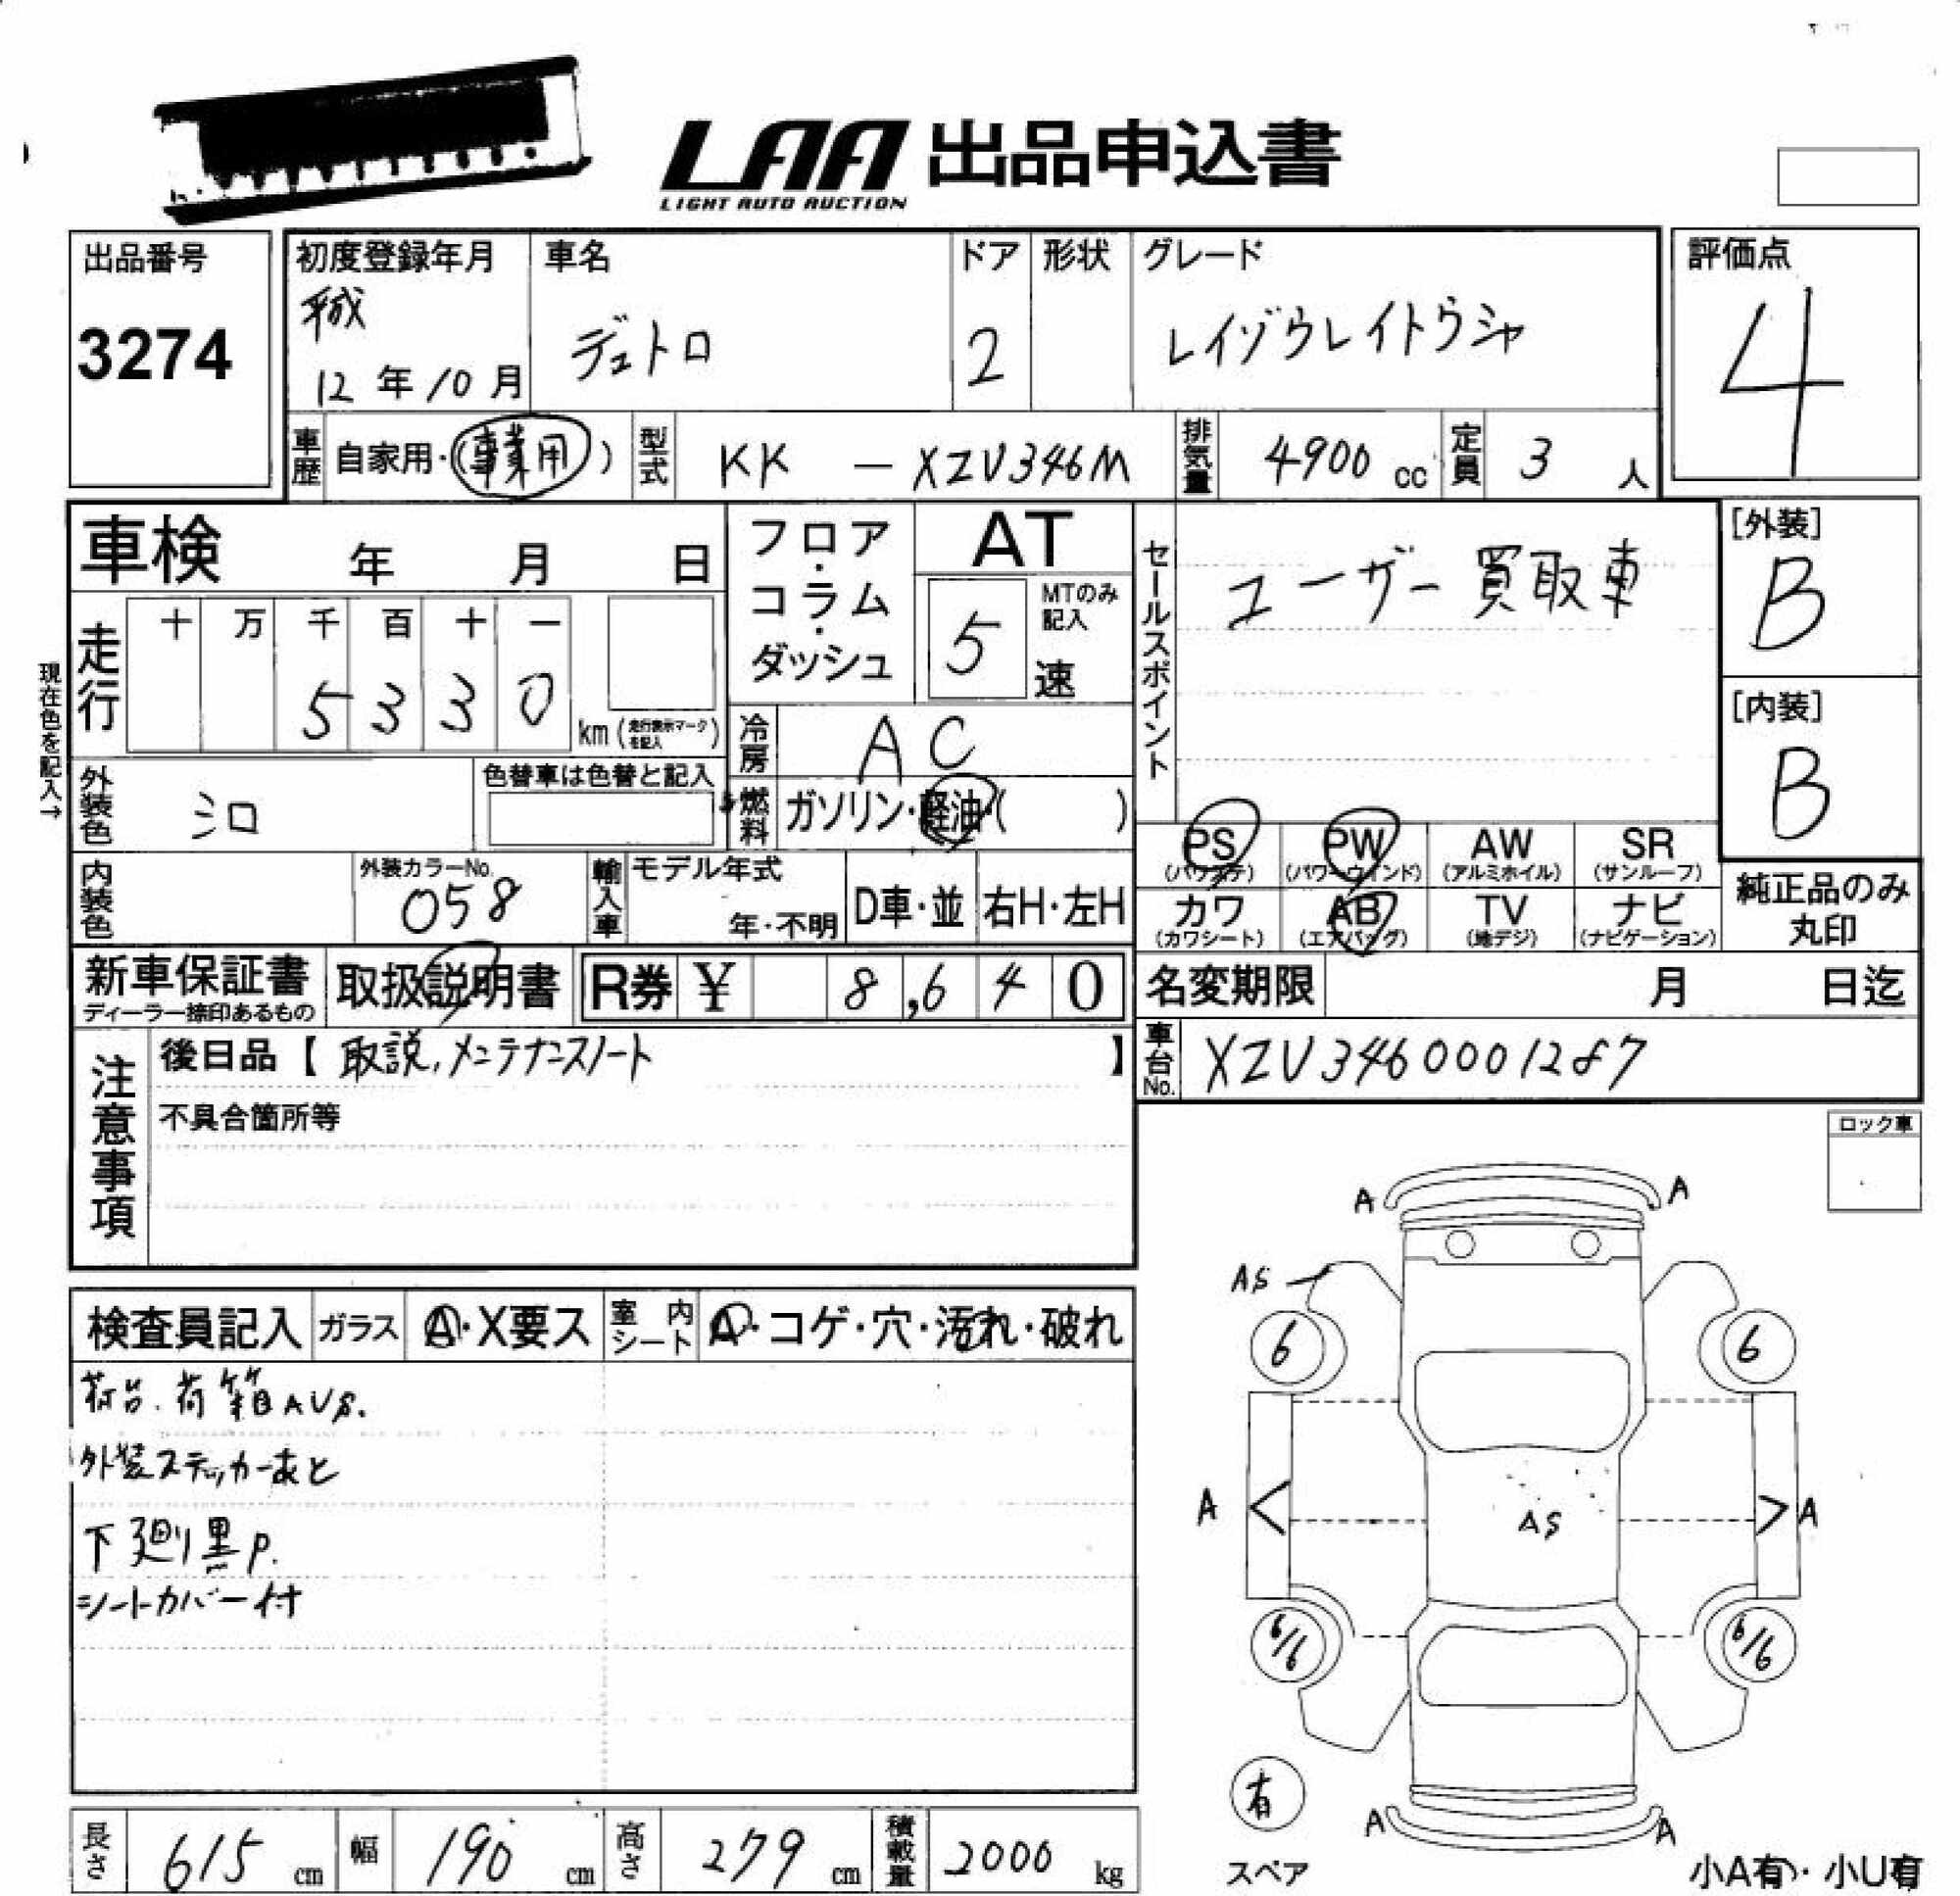 LAA 出品申込書
LIGHT AUTO AUCTION
出品番号
3274
初度登録年月
平成
12年10月
車名
デュトロ
ドア
2
形状
グレード
レイゾウレイトウシャ
評価点
4
車歴
自家用・(事業用)
型式
KK － XZU346M
排気量
4900 cc
定員
3 人
車検 年 月 日
フロア・コラム・ダッシュ
AT
5
MTのみ記入
速
セールスポイント
ユーザー買取車
[外装]
B
[内装]
B
現在色を記入→
走行
十 万 千 百 十 一
5 3 3 0
km (走行表示マークを記入)
冷房
AC
燃料
ガソリン・軽油・( )
外装色
シロ
色替車は色替と記入
内装色
外装カラーNo.
058
輸入車
モデル年式
年・不明
D車・並
右H・左H
PS (パワステ)
PW (パワーウインド)
AW (アルミホイル)
SR (サンルーフ)
カワ (カワシート)
AB (エアバッグ)
TV (地デジ)
ナビ (ナビゲーション)
純正品のみ丸印
新車保証書
ディーラー捺印あるもの
取扱説明書
R券 ¥ 8,640
名変期限 月 日迄
注意事項
後日品【 取説,メンテナンスノート 】
不具合箇所等
車台No.
XZU3460001287
ロック車
検査員記入
ガラス
A・X要ス
室内シート
A・コゲ・穴・汚れ・破れ
荷台.荷箱AUS.
外装ステッカーあと
下廻り黒P.
シートカバー付
A A
AS
6 6
A AS A
6/6 6/6
有
スペア
A A
小A有・小U有
長さ
615 cm
幅
190 cm
高さ
279 cm
積載量
2000 kg